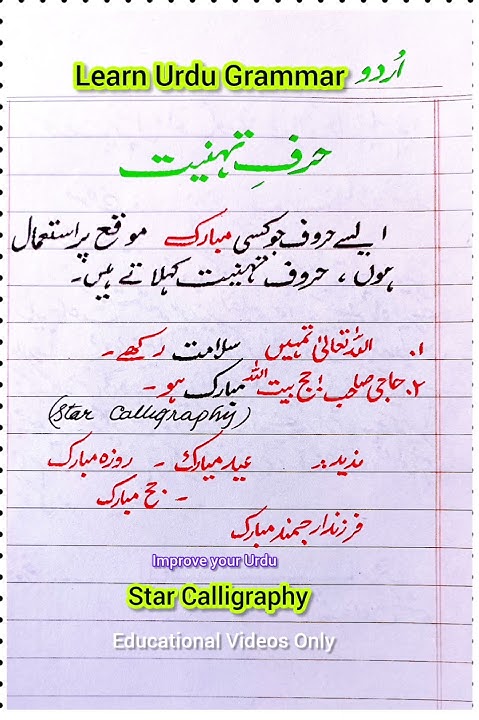 Learn Urdu Grammar اُردو
حرفِ تہنیت
ایسے حروف جو کسی مبارک موقع پر استعمال
ہوں ، حروف تہنیت کہلاتے ہیں۔
۱۔ اللہ تعالیٰ تمہیں سلامت رکھے۔
۲۔ حاجی صاحب! حج بیت اللہ مبارک ہو۔
(Star Calligraphy)
مذید:۔ عید مبارک ۔ روزہ مبارک
۔ حج مبارک
فرزندار جمند مبارک
Improve your Urdu
Star Calligraphy
Educational Videos Only